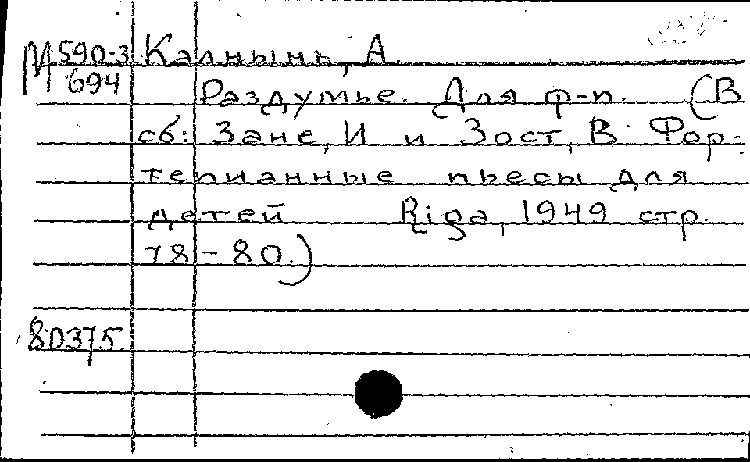 М 590-3 Калнынь, А.
694 Раздумье. Для ф-п. (В
сб: Зане, И и Зост, В. Фор-
тепианные пьесы для
детей Riga, 1949 стр.
78-80.)
80375